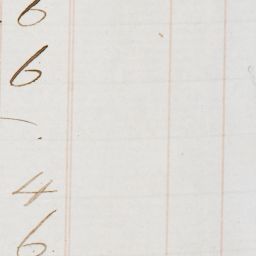 6
6
4
6.